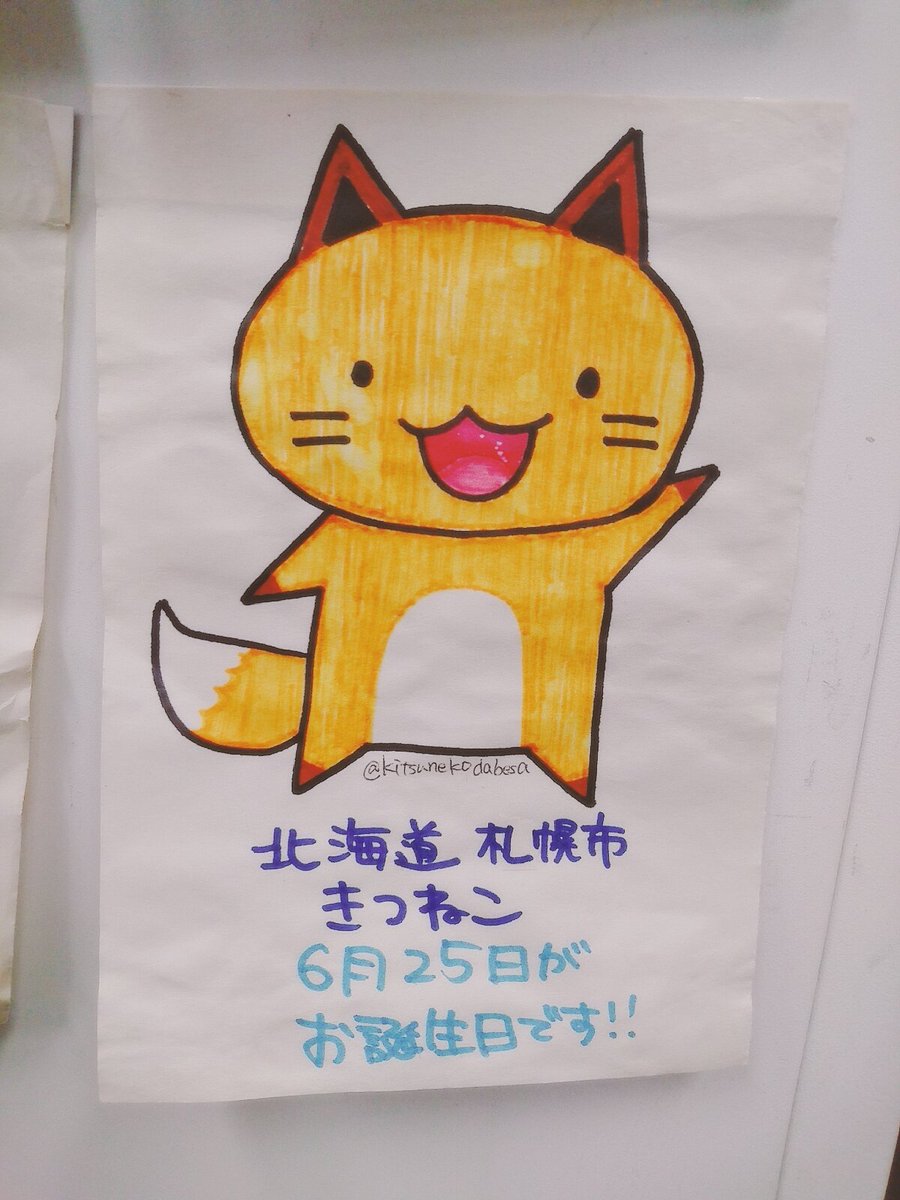 @kitsunekodabesa
北海道 札幌市
きつねこ
6月25日が
お誕生日です!!